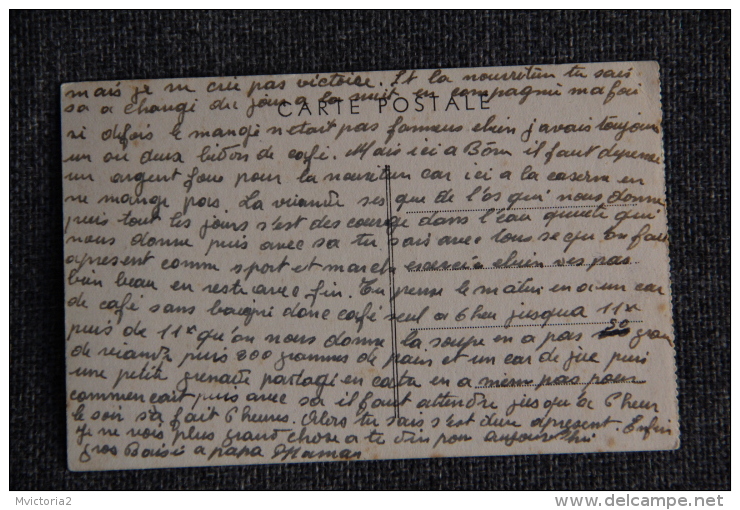 mais je ne crie pas victoire. Et la nourriture tu sais
sa a changé du jour a la nuit en compagnie ma foi
CARTE POSTALE
si defois le mangé n'etait pas fameux ehien j'avais toujours
un ou deux bidon de café. Mais ici a Bône il faut depense
un argent fou pour la nourriture car ici a la caserne en
ne mange pas. La viande ses que de l'os qui nous donne
puis tout les jours s'est des courge dans l'eau qui
nous donne puis avec sa tu sais avec tous se qu'on fait
apresent comme sport et marche exercice ehien ves pas
bien beau en reste avec fin. Tu pense le matin en a un car
de café sans donc café seul a 6 heu jusqua 11 x
puis de 11 x qu'on nous donne la soupe en a pas 50 gram
de viande puis 200 grammes de pain et un car de jue puis
une petite grenade partagé en catre en a mieux pas pour
commencait puis avec sa il faut attendre jusqu'a 6 heur
le soir sa fait 6 heures. Alors tu sais s'est dur apresent. Enfin
je ne vois plus grand chose a te dire pour aujourd'hui
gros Baise a papa Maman
Mvictoria2
www.delcampe.net